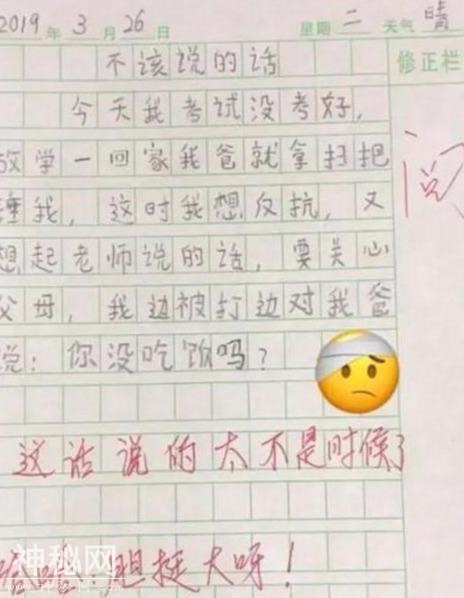 2019年3月26日 星期二 天气晴
不该说的话
修正栏
今天我考试没考好,
放学一回家我爸就拿扫把
捶我,这时我想反抗,又
想起老师说的话,要关心
父母,我边被打边对我爸
说:你没吃饭吗?
阅
这话说的太不是时候了
胆挺大呀!
神秘网